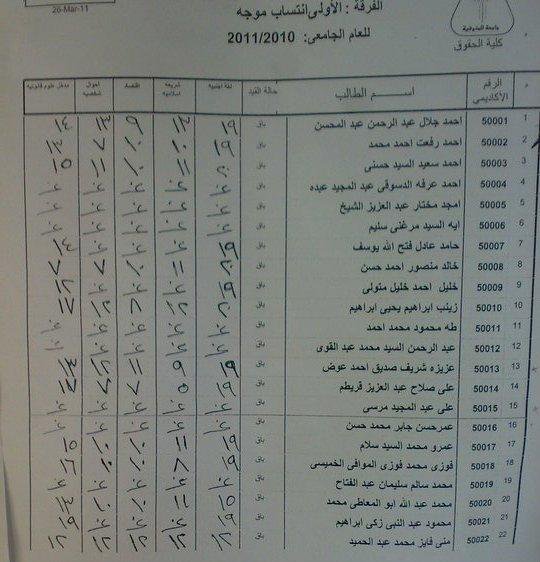 26-Mar-11
الفرقة : الأولى انتساب موجه
للعام الجامعى: 2011/2010
جامعة المنوفية
كلية الحقوق
م الرقم الأكاديمي اســـم الطالب حالة القيد لغة اجنبيه شريعه اسلاميه اقتصاد احوال شخصيه مدخل علوم قانونيه
1 50001 احمد جلال عبد الرحمن عبد المحسن باق ١٩ ١٣ ٩ ١٣ ١٤
2 50002 احمد رفعت احمد محمد باق ١٩ ١٠ ١٠ ٧ ١٣
3 50003 احمد سعيد السيد حسنى باق ١١ ١٠ ١١ ١٥
4 50004 احمد عرفه الدسوقى عبد المجيد عبده باق غ غ غ غ غ
5 50005 امجد مختار عبد العزيز الشيخ باق غ غ غ غ غ
6 50006 ايه السيد مرغنى سليم باق غ غ غ غ غ
7 50007 حامد عادل فتح الله يوسف باق ١٩ غ غ غ ١٤
8 50008 خالد منصور احمد حسن باق ١١ ١٠ ٧ ٧
9 50009 خليل احمد خليل متولى باق ١٩ غ غ غ ١٢
10 50010 زينب ابراهيم يحيى ابراهيم باق ٢٠ ١٢ ٨ ١٢ ١٧
11 50011 طه محمود محمد احمد باق غ غ غ غ غ
12 50012 عبد الرحمن السيد محمد عبد القوى باق غ غ غ غ
13 50013 عزيزه شريف صديق احمد عوض باق ١٩ ٩ ١١ ١٢ ١٣
14 50014 على صلاح عبد العزيز قريطم باق ١٩ ٥ ٧ ٧
15 50015 على عبد المجيد مرسى باق غ غ غ غ غ
16 50016 عمرحسن جابر محمد حسن باق غ غ غ غ غ
17 50017 عمرو محمد السيد سلام باق ١٩ ١١ ١٠ ١٠ ١٥
18 50018 فوزى محمد فوزى الموافى الخميسى باق ١٩ ٨ ١٠ ١٦
19 50019 محمد سالم سليمان عبد الفتاح باق غ غ غ غ غ
20 50020 محمد عبد الله ابو المعاطى محمد باق ١٥ ١١ ١٠ ١٠ ١٣
21 50021 محمود عبد النبى زكى ابراهيم باق ١٩ غ غ غ ١٩
22 50022 منى فايز محمد عبد الحميد باق ١٢ غ ١٢ ١٢